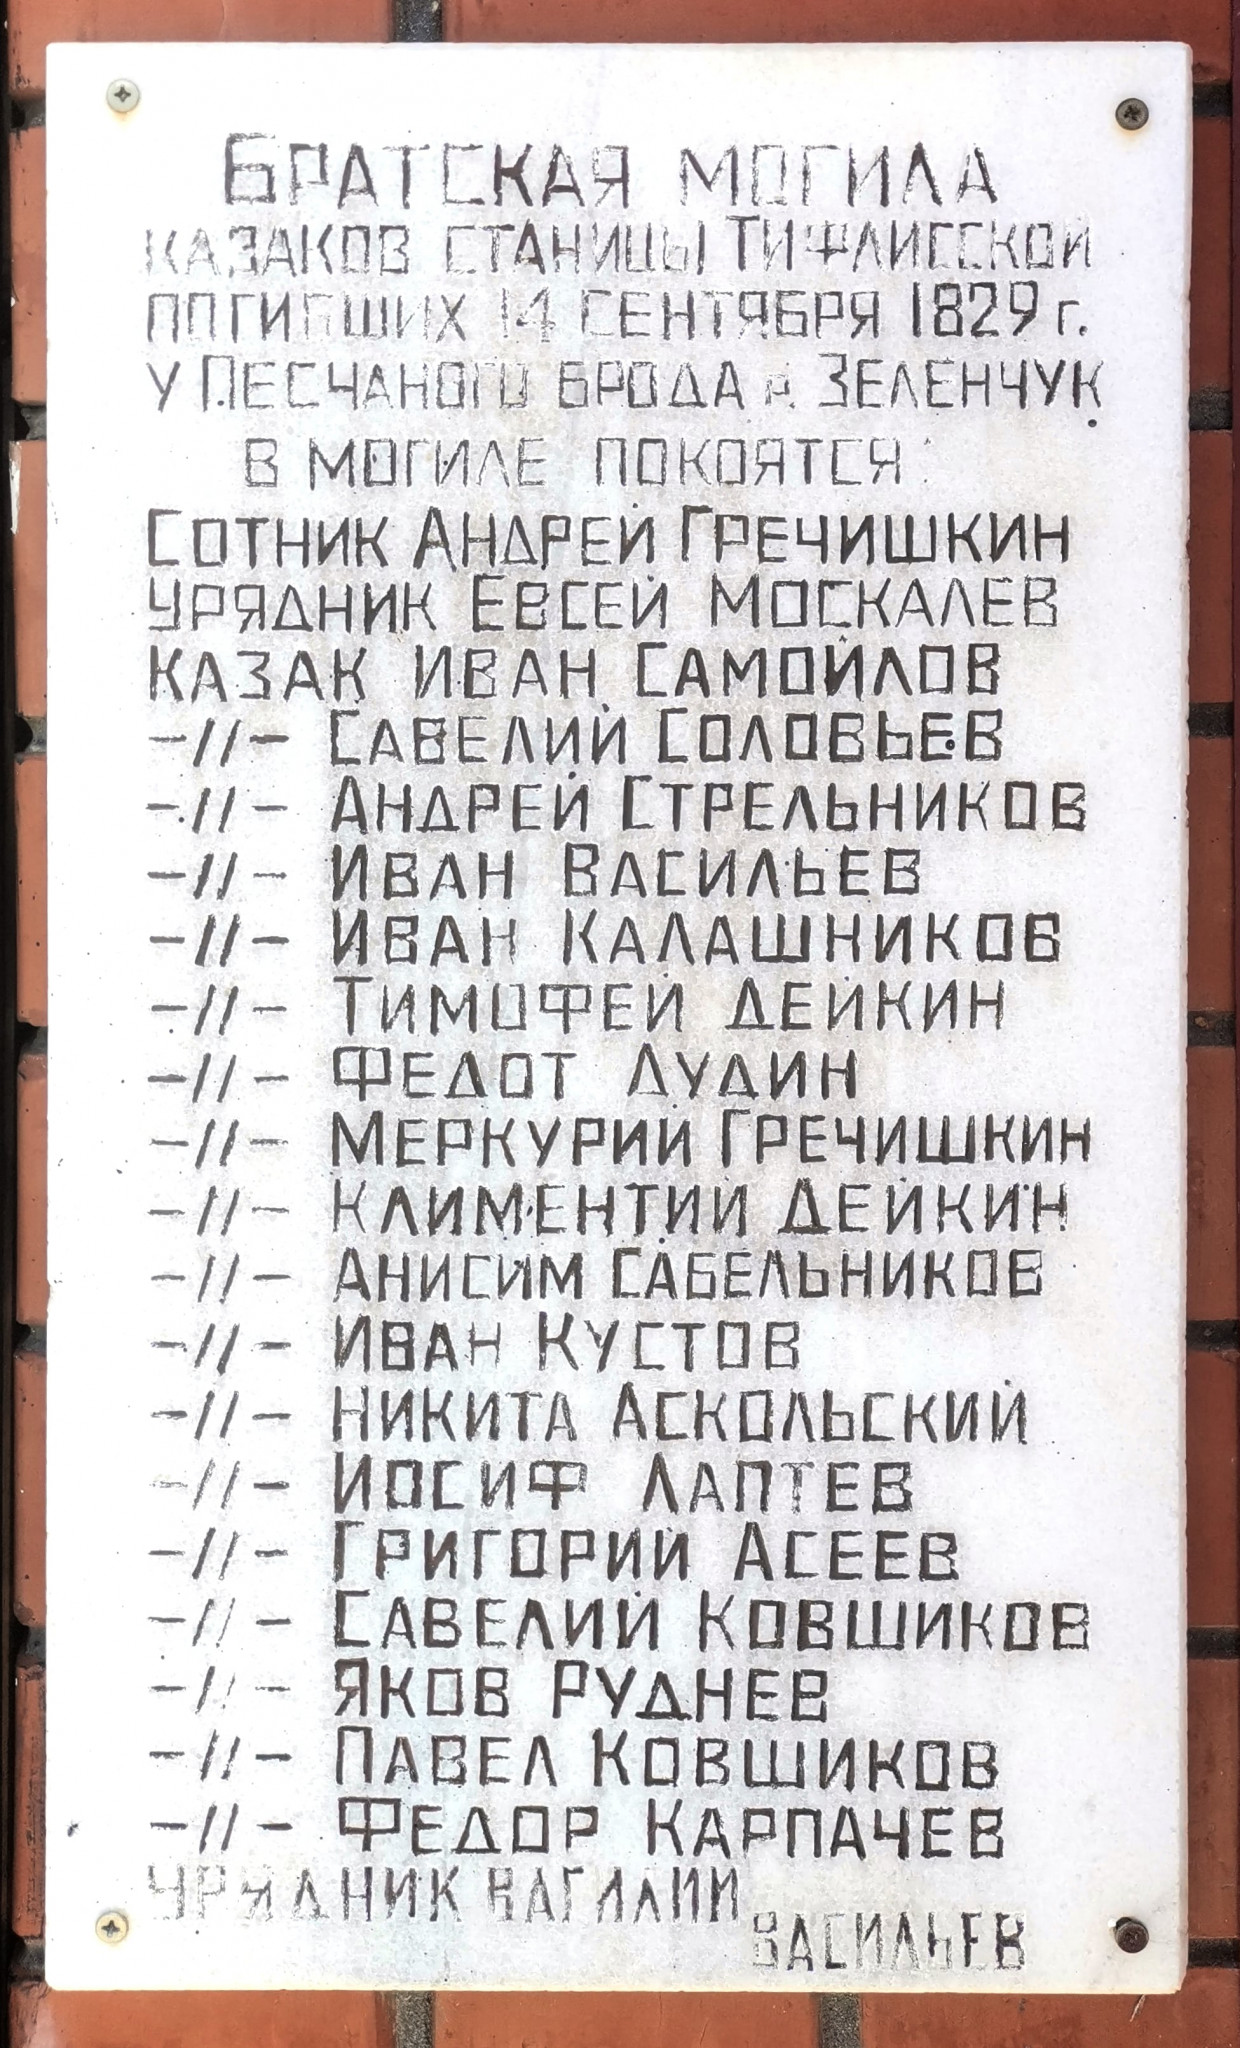 Братская могила
казаков станицы Тифлисской
погибших 14 сентября 1829 г.
у Песчаного брода р. Зеленчук.
в могиле покоятся:
Сотник Андрей Гречишкин
Урядник Евсей Москалев
Казак Иван Самойлов
-//- Савелий Соловьев
-//- Андрей Стрельников
-//- Иван Васильев
-//- Иван Калашников
-//- Тимофей Дейкин
-//- Федот Дудин
-//- Меркурий Гречишкин
-//- Климентий Дейкин
-//- Анисим Сабельников
-//- Иван Кустов
-//- Никита Аскольский
-//- Иосиф Лаптев
-//- Григорий Асеев
-//- Савелий Ковшиков
-//- Яков Руднев
-//- Павел Ковшиков
-//- Федор Карпачев
Урядник
Васильев